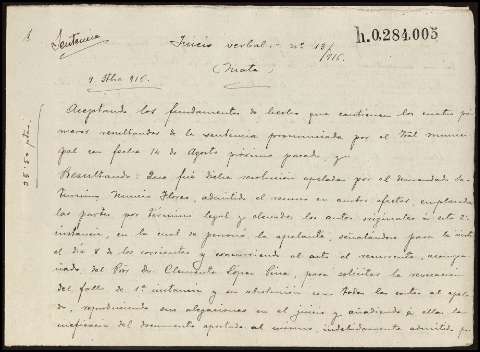 Sentencia
Juicio verbal - nº 13/916.
h.0.284.005
9. Sbre 916.
Aceptando los fundamentos de hecho que contienen los cuatro pri-
meros resultandos de la sentencia pronunciada por el Tral muni-
pal con fecha 14 de Agosto próximo pasado, y
Resultando: Que fué dicha resolución apelada por el demandado
Murcia Flores, admitido el recurso en ambos efectos, emplazadas
las partes por término legal y elevados los autos originales á esta 2ª
instancia, en la cual se personó la apelante, señalándose para la vista
el día 8 de los corrientes y concurriendo al acto el recurrente, acompa-
ñado del Pror Dn Clemente Lopez para solicitar la revocación
del fallo de 1ª instancia y su absolución con todas las costas al apela-
do, reproduciendo sus alegaciones en el juicio y añadiendo á ellas la
ineficacia del documento aportado al mismo, indebidamente admitido